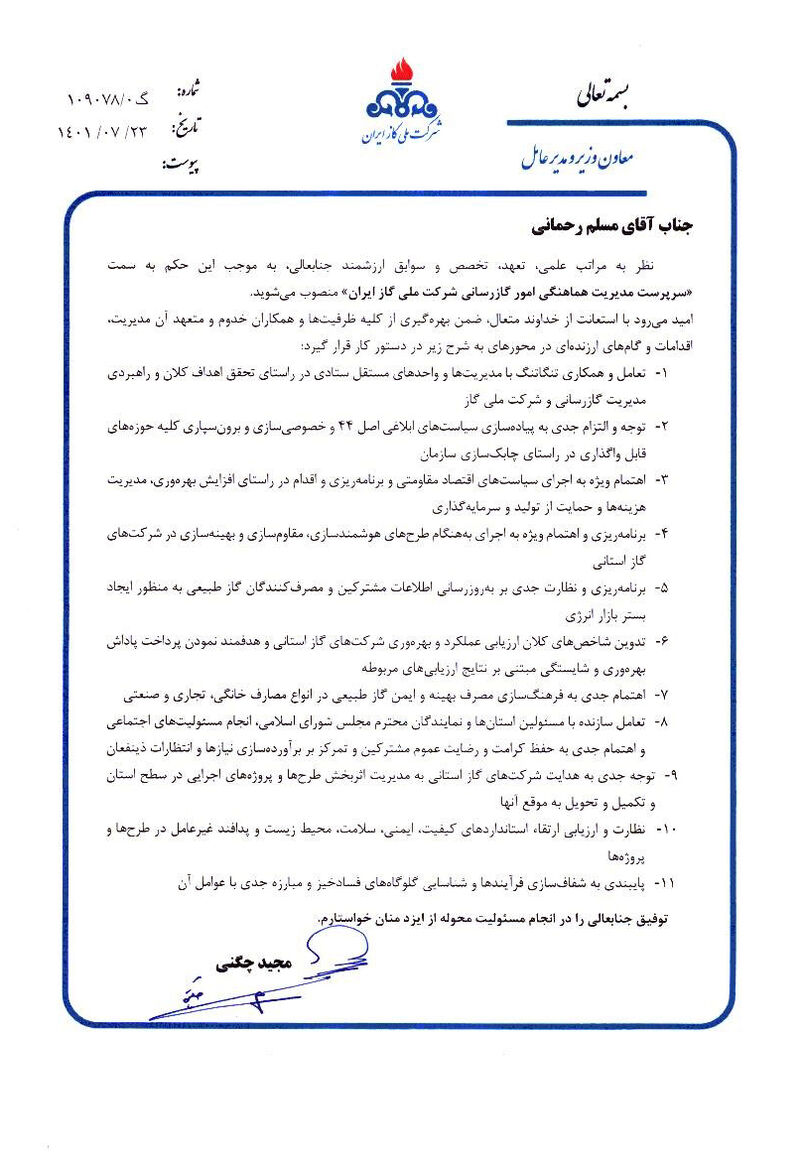 بسمه تعالی
معاون وزیر و مدیر عامل
شرکت ملی گاز ایران
شماره: گ۱۰۹۰۷۸/۰
تاریخ: ۱۴۰۱/۰۷/۲۳
پیوست:
جناب آقای مسلم رحمانی
نظر به مراتب علمی، تعهد، تخصص و سوابق ارزشمند جنابعالی، به موجب این حکم به سمت
«سرپرست مدیریت هماهنگی امور گازرسانی شرکت ملی گاز ایران» منصوب می‌شوید.
امید می‌رود با استعانت از خداوند متعال، ضمن بهره‌گیری از کلیه ظرفیت‌ها و همکاران خدوم و متعهد آن مدیریت،
اقدامات و گام‌های ارزنده‌ای در محورهای به شرح زیر در دستور کار قرار گیرد:
۱- تعامل و همکاری تنگاتنگ با مدیریت‌ها و واحدهای مستقل ستادی در راستای تحقق اهداف کلان و راهبردی
مدیریت گازرسانی و شرکت ملی گاز
۲- توجه و التزام جدی به پیاده‌سازی سیاست‌های ابلاغی اصل ۴۴ و خصوصی‌سازی و برون‌سپاری کلیه حوزه‌های
قابل واگذاری در راستای چابک‌سازی سازمان
۳- اهتمام ویژه به اجرای سیاست‌های اقتصاد مقاومتی و برنامه‌ریزی و اقدام در راستای افزایش بهره‌وری، مدیریت
هزینه‌ها و حمایت از تولید و سرمایه‌گذاری
۴- برنامه‌ریزی و اهتمام ویژه به اجرای به‌هنگام طرح‌های هوشمندسازی، مقاوم‌سازی و بهینه‌سازی در شرکت‌های
گاز استانی
۵- برنامه‌ریزی و نظارت جدی بر به‌روزرسانی اطلاعات مشترکین و مصرف‌کنندگان گاز طبیعی به منظور ایجاد
بستر بازار انرژی
۶- تدوین شاخص‌های کلان ارزیابی عملکرد و بهره‌وری شرکت‌های گاز استانی و هدفمند نمودن پرداخت پاداش
بهره‌وری و شایستگی مبتنی بر نتایج ارزیابی‌های مربوطه
۷- اهتمام جدی به فرهنگ‌سازی مصرف بهینه و ایمن گاز طبیعی در انواع مصارف خانگی، تجاری و صنعتی
۸- تعامل سازنده با مسئولین استان‌ها و نمایندگان محترم مجلس شورای اسلامی، انجام مسئولیت‌های اجتماعی
و اهتمام جدی به حفظ کرامت و رضایت عموم مشترکین و تمرکز بر برآورده‌سازی نیازها و انتظارات ذینفعان
۹- توجه جدی به هدایت شرکت‌های گاز استانی به مدیریت اثربخش طرح‌ها و پروژه‌های اجرایی در سطح استان
و تکمیل و تحویل به موقع آنها
۱۰- نظارت و ارزیابی ارتقاء استانداردهای کیفیت، ایمنی، سلامت، محیط زیست و پدافند غیرعامل در طرح‌ها و
پروژه‌ها
۱۱- پایبندی به شفاف‌سازی فرآیندها و شناسایی گلوگاه‌های فسادخیز و مبارزه جدی با عوامل آن
توفیق جنابعالی را در انجام مسئولیت محوله از ایزد منان خواستارم.
مجید چگنی